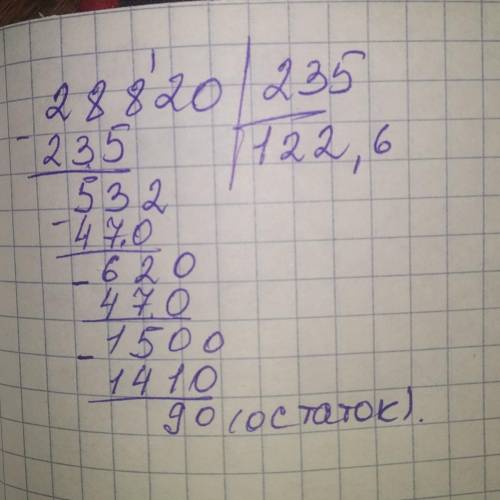 28820 | 235
- 235 | 122,6
532
- 470
- 620
470
- 1500
1410
90 (остаток).